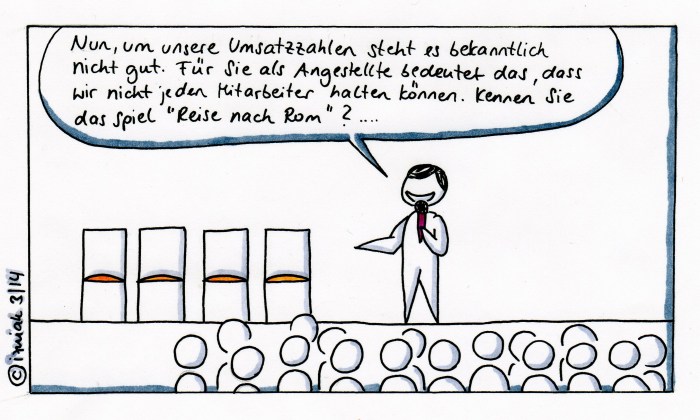 Nun, um unsere Umsatzzahlen steht es bekanntlich
nicht gut. Für Sie als Angestellte bedeutet das, dass
wir nicht jeden Mitarbeiter halten können. Kennen Sie
das Spiel "Reise nach Rom"? ....
© 3/14